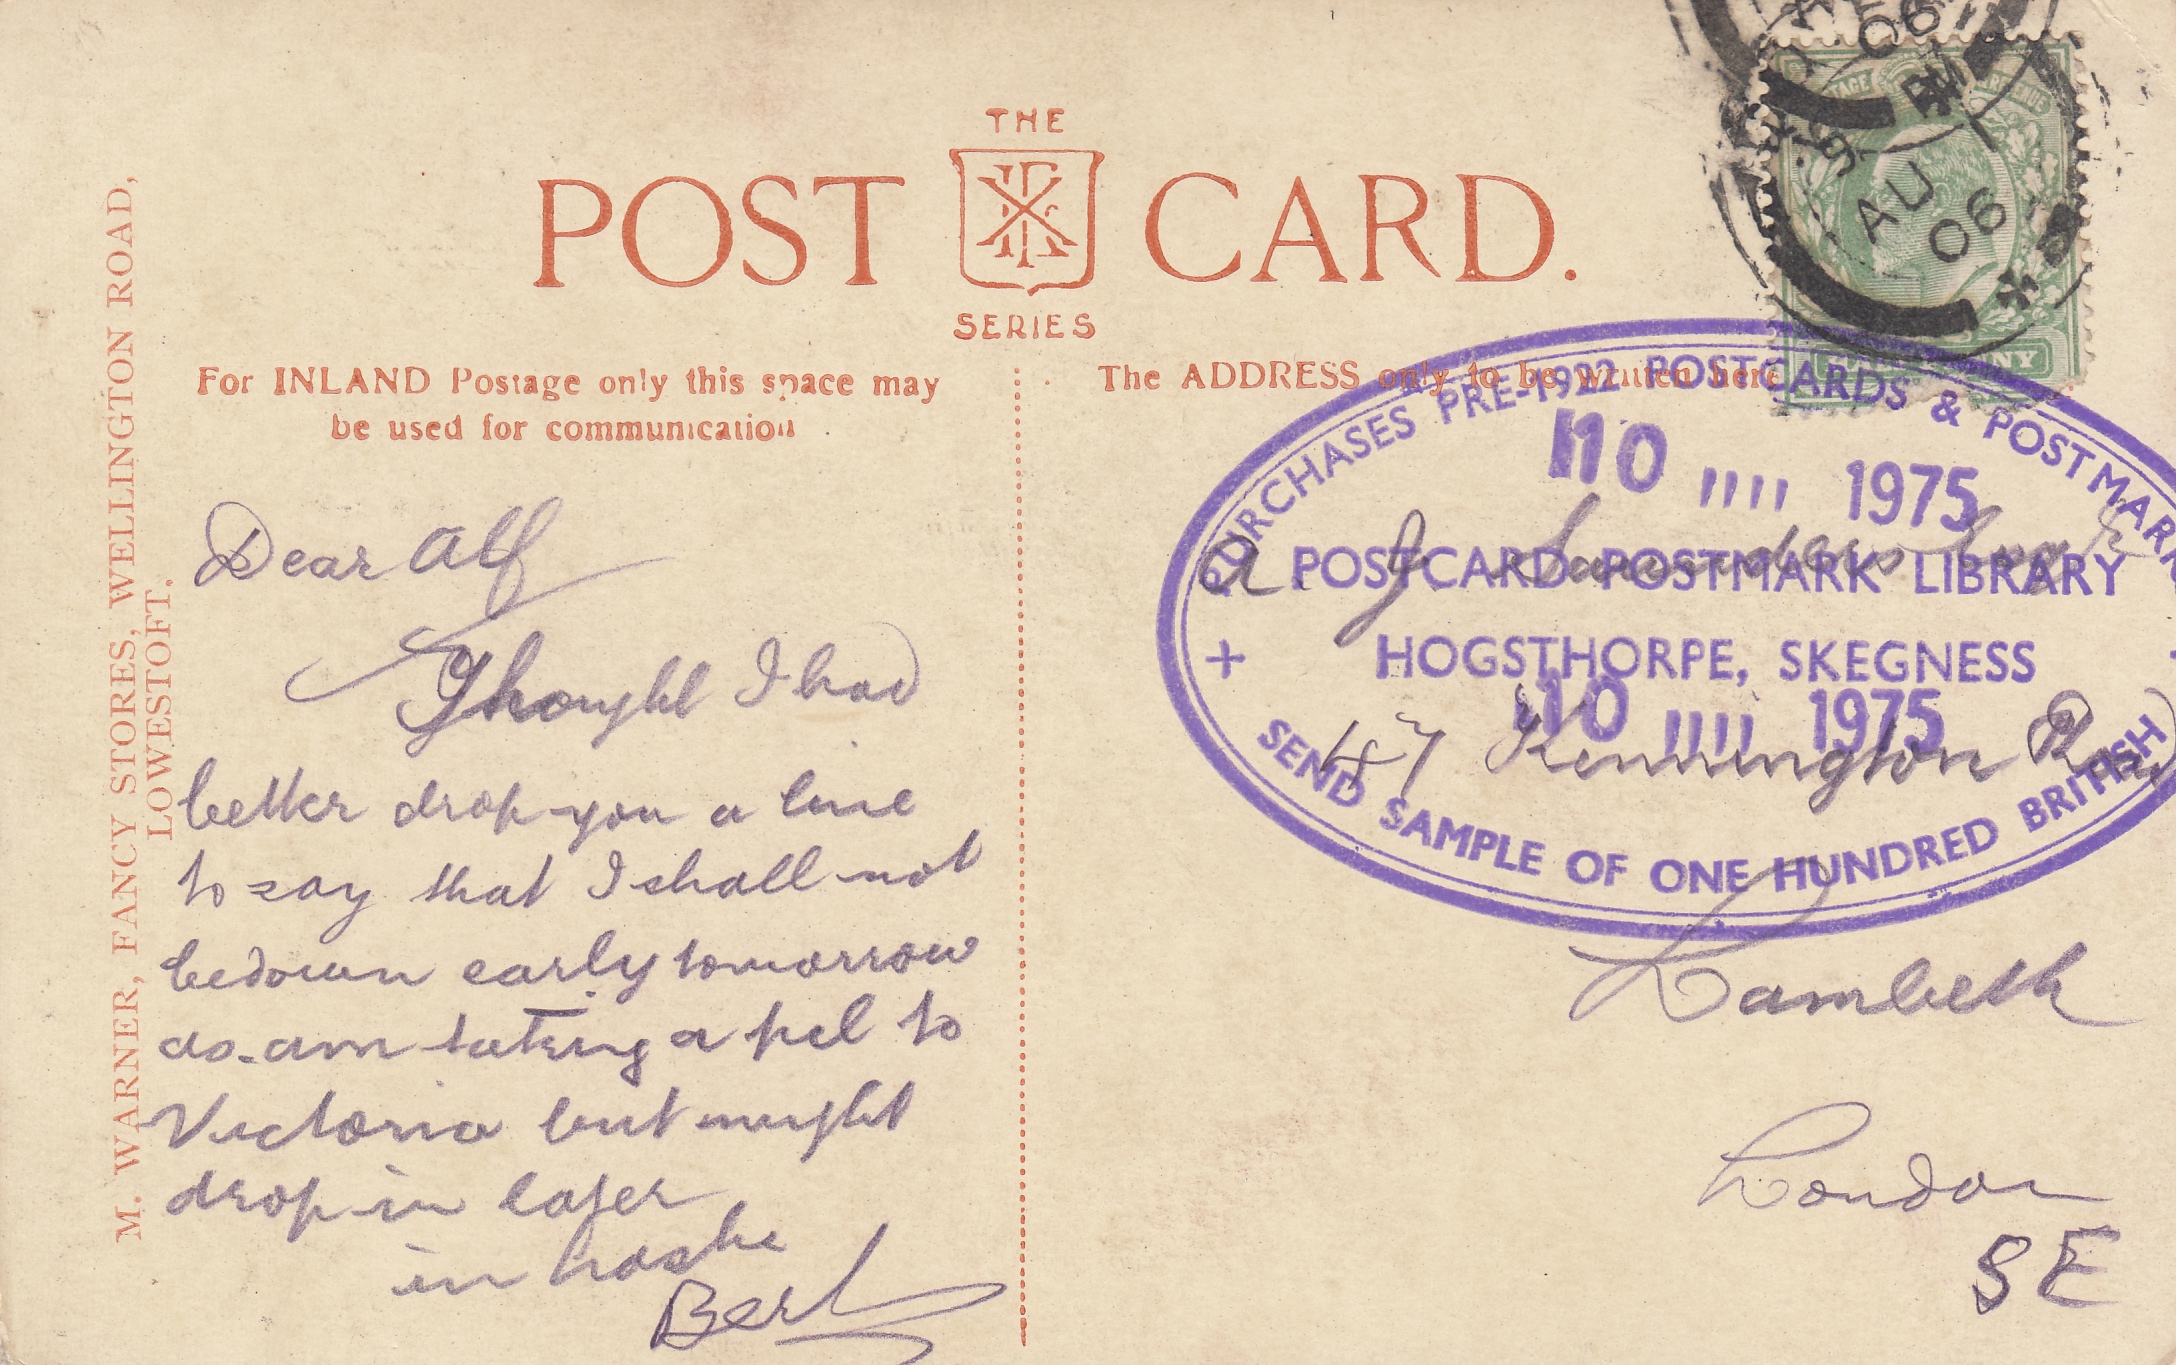 THE
POST CARD.
SERIES
For INLAND Postage only this space may
be used for communication
The ADDRESS only to be written here
M. WARNER, FANCY STORES, WELLINGTON ROAD,
LOWESTOFT.
Dear Alf
Thought I had
better drop you a line
to say that I shall not
be down early tomorrow
as am taking a pal to
Victoria but might
drop in later
in haste
Bert
A. J. Saunders Esqr
47 Kennington Road
Lambeth
London
SE
PURCHASES PRE-1922 POSTCARDS & POSTMARK
10 1975
POSTCARD POSTMARK LIBRARY
+ HOGSTHORPE, SKEGNESS
10 1975
SEND SAMPLE OF ONE HUNDRED BRITISH
06
PM
AU
06